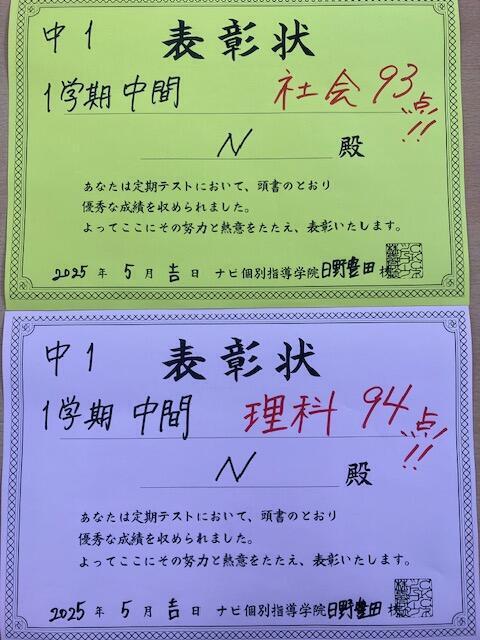 中1 表彰状
1学期 中間 社会 93点!!
N 殿
あなたは定期テストにおいて、頭書のとおり
優秀な成績を収められました。
よってここにその努力と熱意をたたえ、表彰いたします。
2025 年 5 月 吉 日 ナビ個別指導学院 日野豊田 校
中1 表彰状
1学期 中間 理科 94点!!
N 殿
あなたは定期テストにおいて、頭書のとおり
優秀な成績を収められました。
よってここにその努力と熱意をたたえ、表彰いたします。
2025 年 5 月 吉 日 ナビ個別指導学院 日野豊田 校